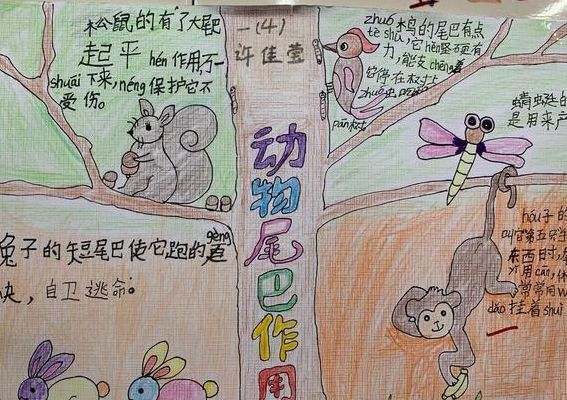 松鼠的有了大尾
起平hén作用,不一
shuāi下来,néng保护它不
受伤。
一(4)
许佳莹
zhuó木鸟的尾巴有点
tè shū,它hěn坚
力,能支chēng着
它停在树上
pān树
动物尾巴作用
蜻蜓的
是用来产
兔子的短尾巴使它跑的gèng
快,自卫逃命。
hóu子的
叫它第五只
东西时,
才用cān,
常常用
dào挂着shuì